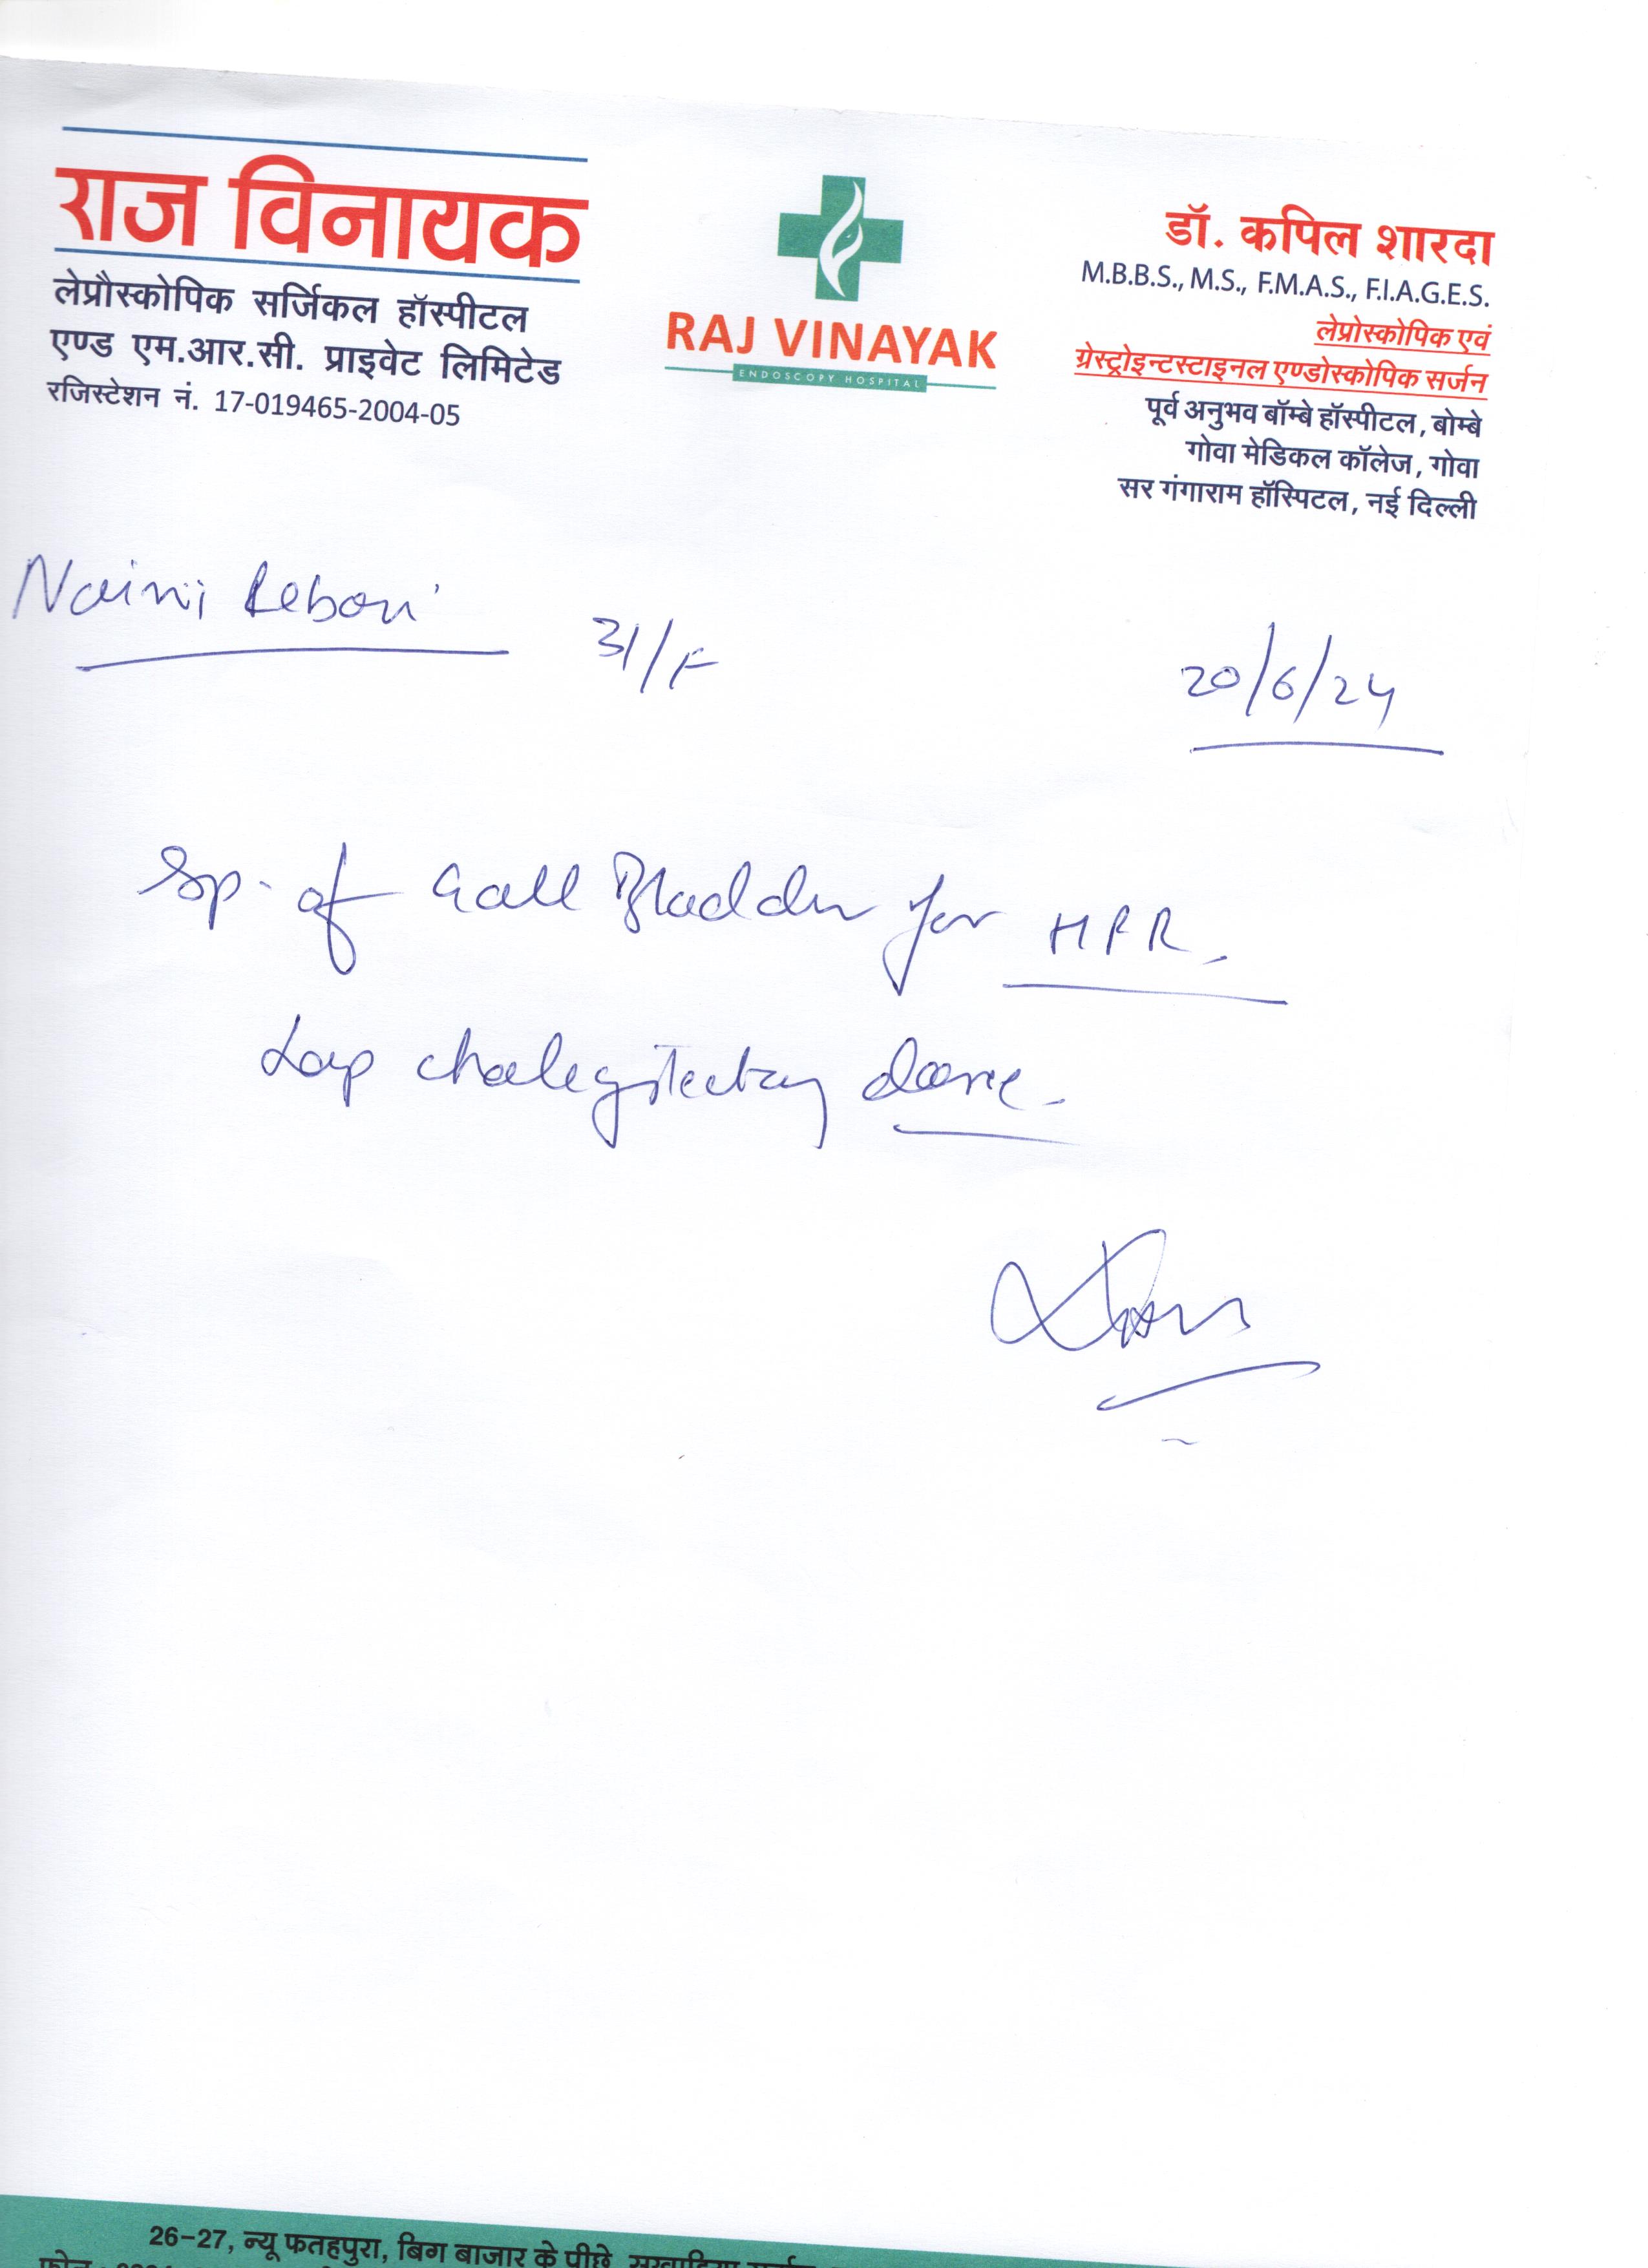 राज विनायक
लेप्रौस्कोपिक सर्जिकल हॉस्पीटल
एण्ड एम.आर.सी. प्राइवेट लिमिटेड
रजिस्टेशन नं. 17-019465-2004-05
RAJ VINAYAK
ENDOSCOPY HOSPITAL
डॉ. कपिल शारदा
M.B.B.S., M.S., F.M.A.S., F.I.A.G.E.S.
लेप्रोस्कोपिक एवं
ग्रेस्ट्रोइन्टस्टाइनल एण्डोस्कोपिक सर्जन
पूर्व अनुभव बॉम्बे हॉस्पीटल, बोम्बे
गोवा मेडिकल कॉलेज, गोवा
सर गंगाराम हॉस्पिटल, नई दिल्ली
31/F
20/6/24
Sp. of Gall Bladder for HPR.
Lap done.
26-27, न्यू फतहपुरा, बिग बाजार के पीछे,